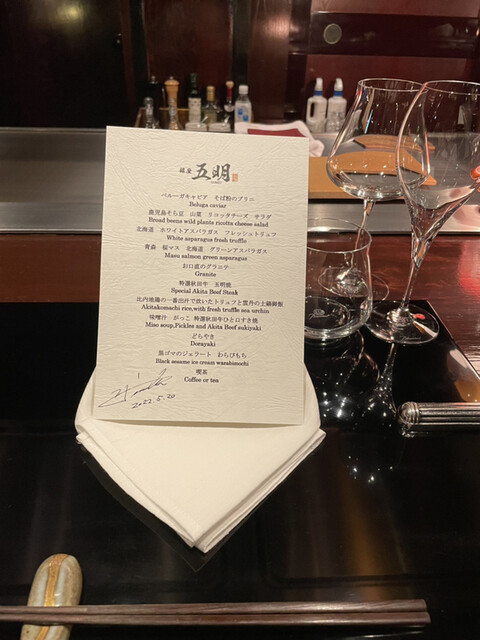 銀座 五明
ベルーガキャビア　そば粉のブリニ
Beluga caviar
鹿児島そら豆　山菜　リコッタチーズ　サラダ
Broad beons wild plants ricotta cheese salad
北海道　ホワイトアスパラガス　フレッシュトリュフ
White asparagus fresh truffle
青森　桜マス　北海道　グリーンアスパラガス
Masu salmon green asparagus
お口直のグラニテ
Granite
特選秋田牛　五明焼
Special Akita Beef Steak
比内地鶏の一番出汁で炊いたトリュフと雲丹の土鍋御飯
Akitakomachi rice,with fresh truffle sea urchin
味噌汁　がっこ 特選秋田牛ひと口すき焼
Miso soup,Pickles and Akita Beef sukiyaki
どらやき
Dorayaki
黒ゴマのジェラート　わらびもち
Black sesame ice cream warabimochi
喫茶
Coffee or tea
2022 5.20